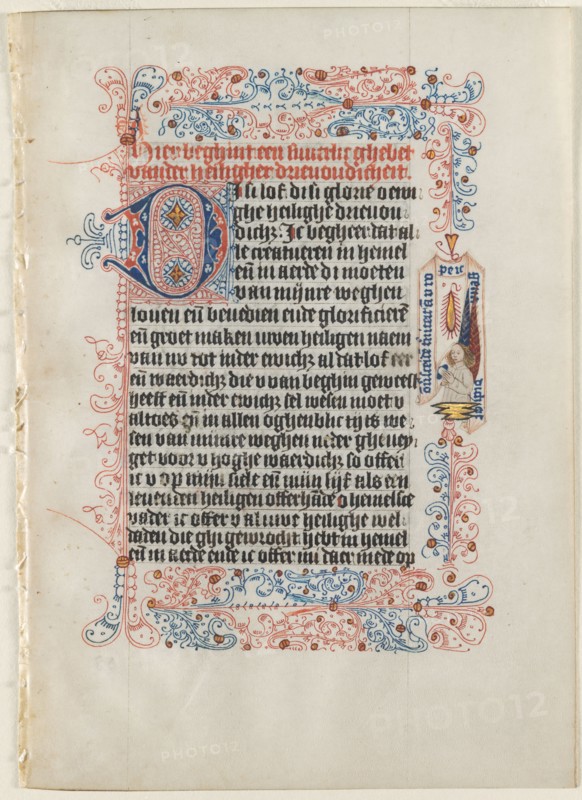 Hier beghint een suuerlic ghebet
vander heiligher drieuoudicheit.
Di si lof di si glorie o ewi
ghe heilighe drieuou
dichz. Ic begheer dat al
le creatueren in hemel
eñ in aerde di moeten
van mijnre weghen
louen eñ benedien ende glorificierē
eñ groet maken uwen heiligen naem
van nv tot inder ewichz al dat lof
eñ waerdichz die v van beghin geweest
heeft eñ inder ewichz sel wesen moet v
altoes eñ in allen oghenblic tijts we
sen van minre weghen
get voor v hoghe waerdichz so offer
ic v op mijn siele eñ mijn lijf als een
leuenden heiligen offerhāde o hemelsce
vader ic offer v al uwe heilighe wel
daden die ghi gewrocht hebt in hemel
eñ in aerde ende ic offer mi daer mede op
PHOTO12
PHOTO12
PHOTO12